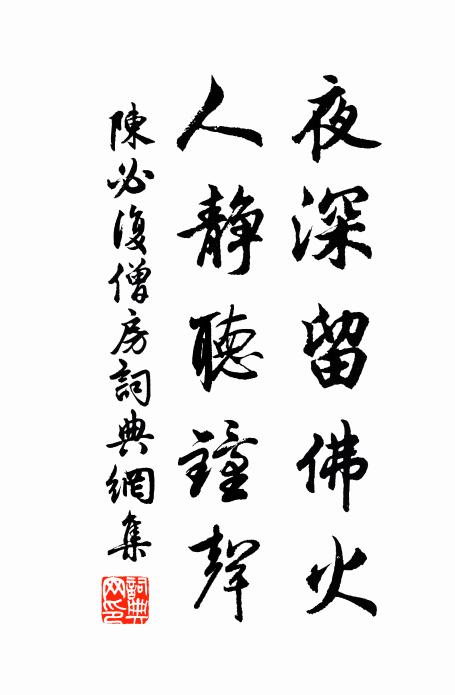 夜深留佛火
人静聽鐘聲
陳必復僧房詞典網集
詞典網印